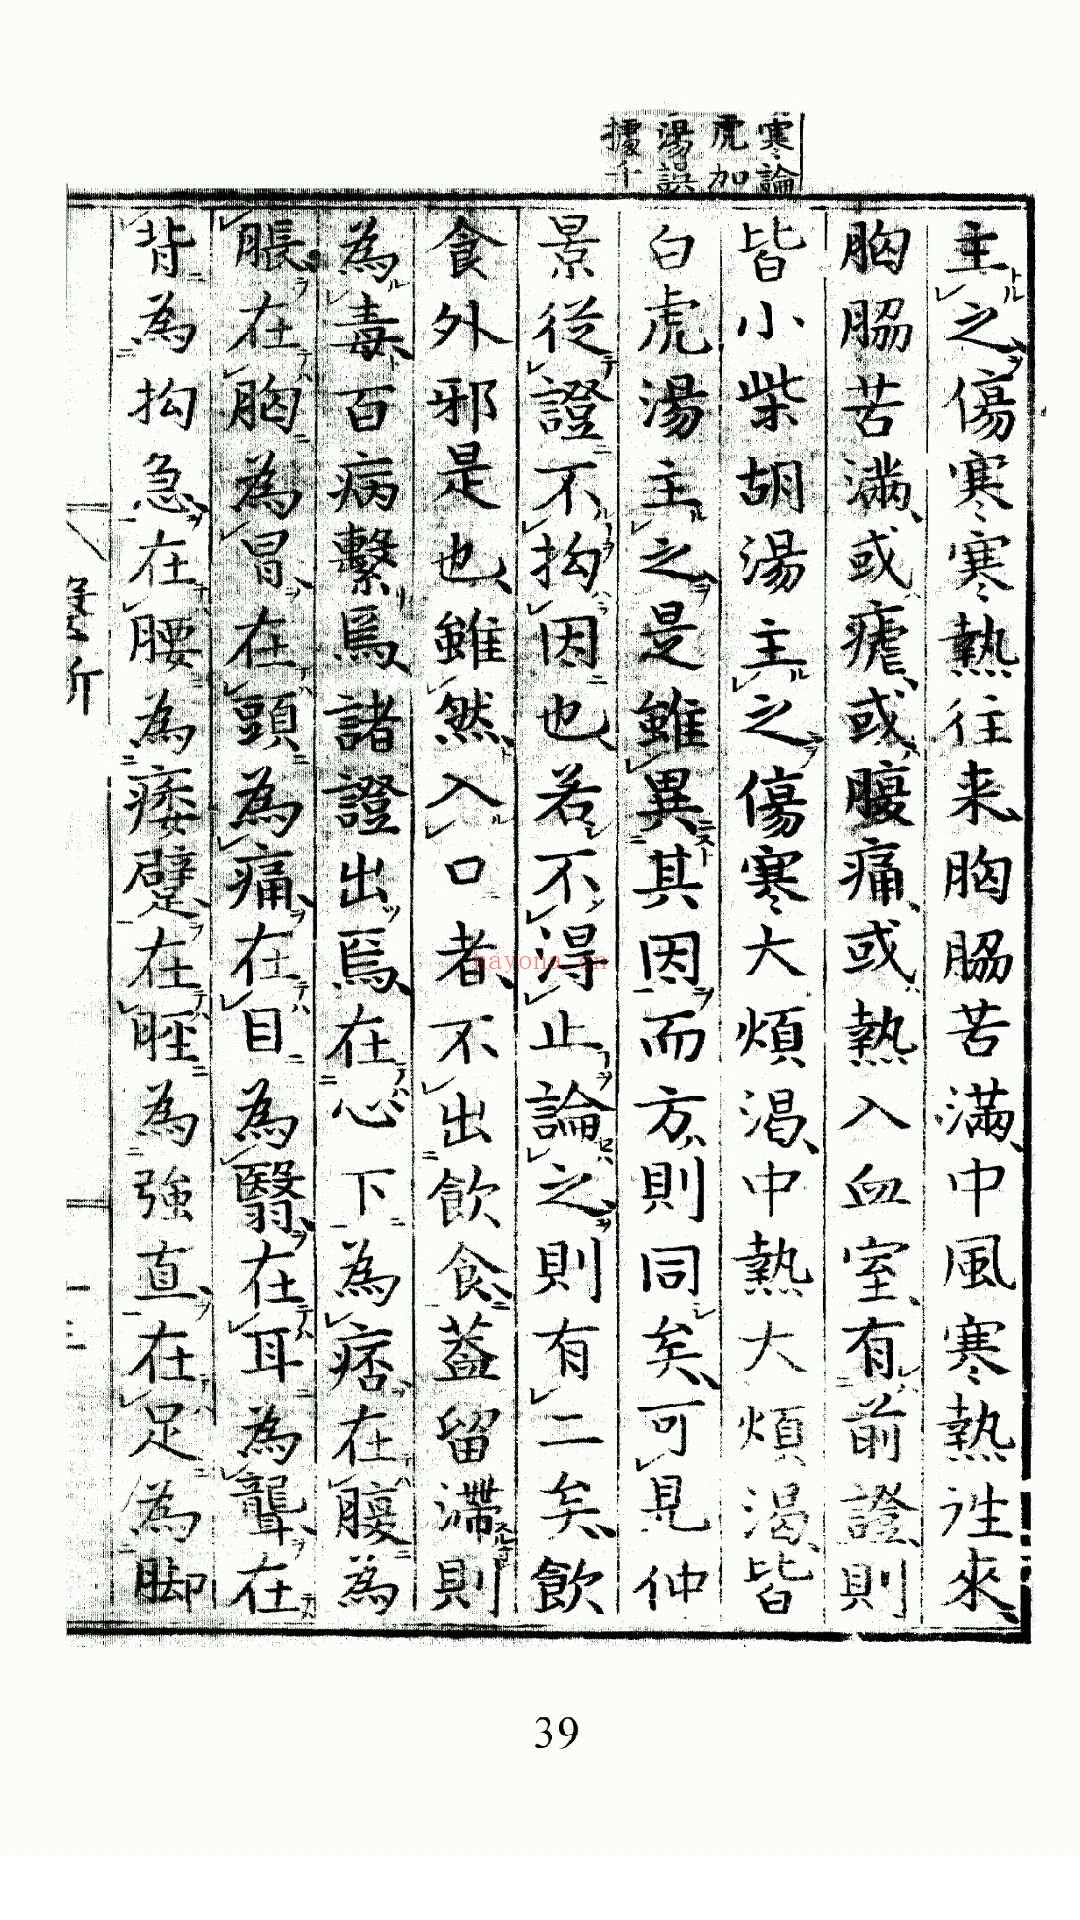 寒論
虎加
湯誤
據千
主之傷寒寒熱往来胸脇苦滿中風寒熱往來
胸脇苦滿或瘧或腹痛或熱入血室有前證則
皆小柴胡湯主之傷寒大煩渴中熱大煩渴皆
白虎湯主之是雖異其因而方則同矣可見仲
景從證不拘因也若不得止論之則有二矣飲
食外邪是也雖然入口者不出飲食蓋留滯則
為毒百病繫焉諸證出焉在心下為痞在腹為
脹在胸為冒在頭為痛在目為翳在耳為聾在
背為拘急在腰為痿躄在脛為強直在足為脚
醫斷
十三
nayona.cn
39